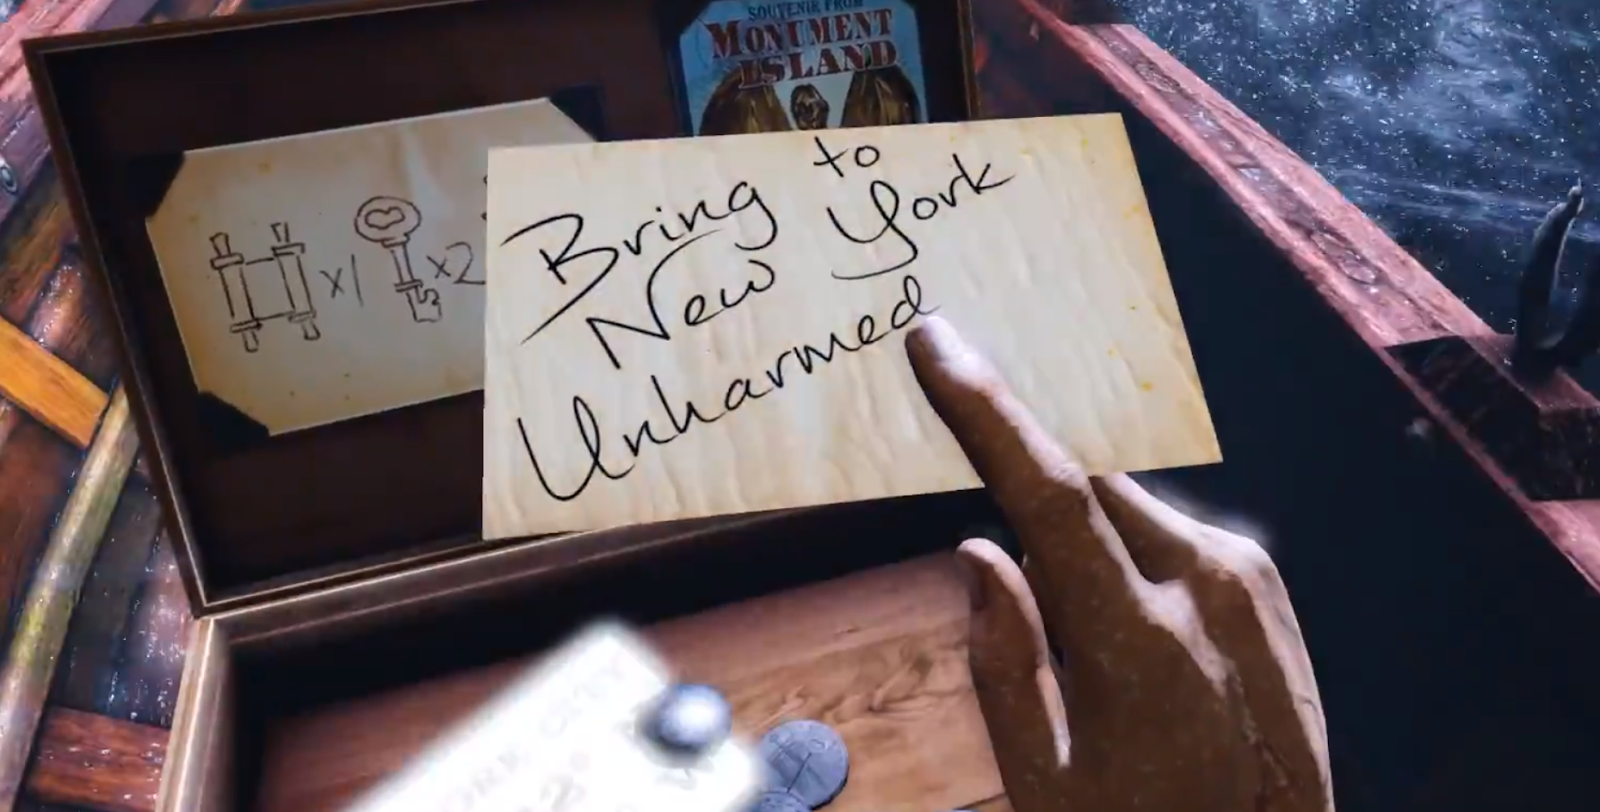 SOUVENIR FROM
MONUMENT
ISLAND
x1
x2
Bring to
New York
Unharmed